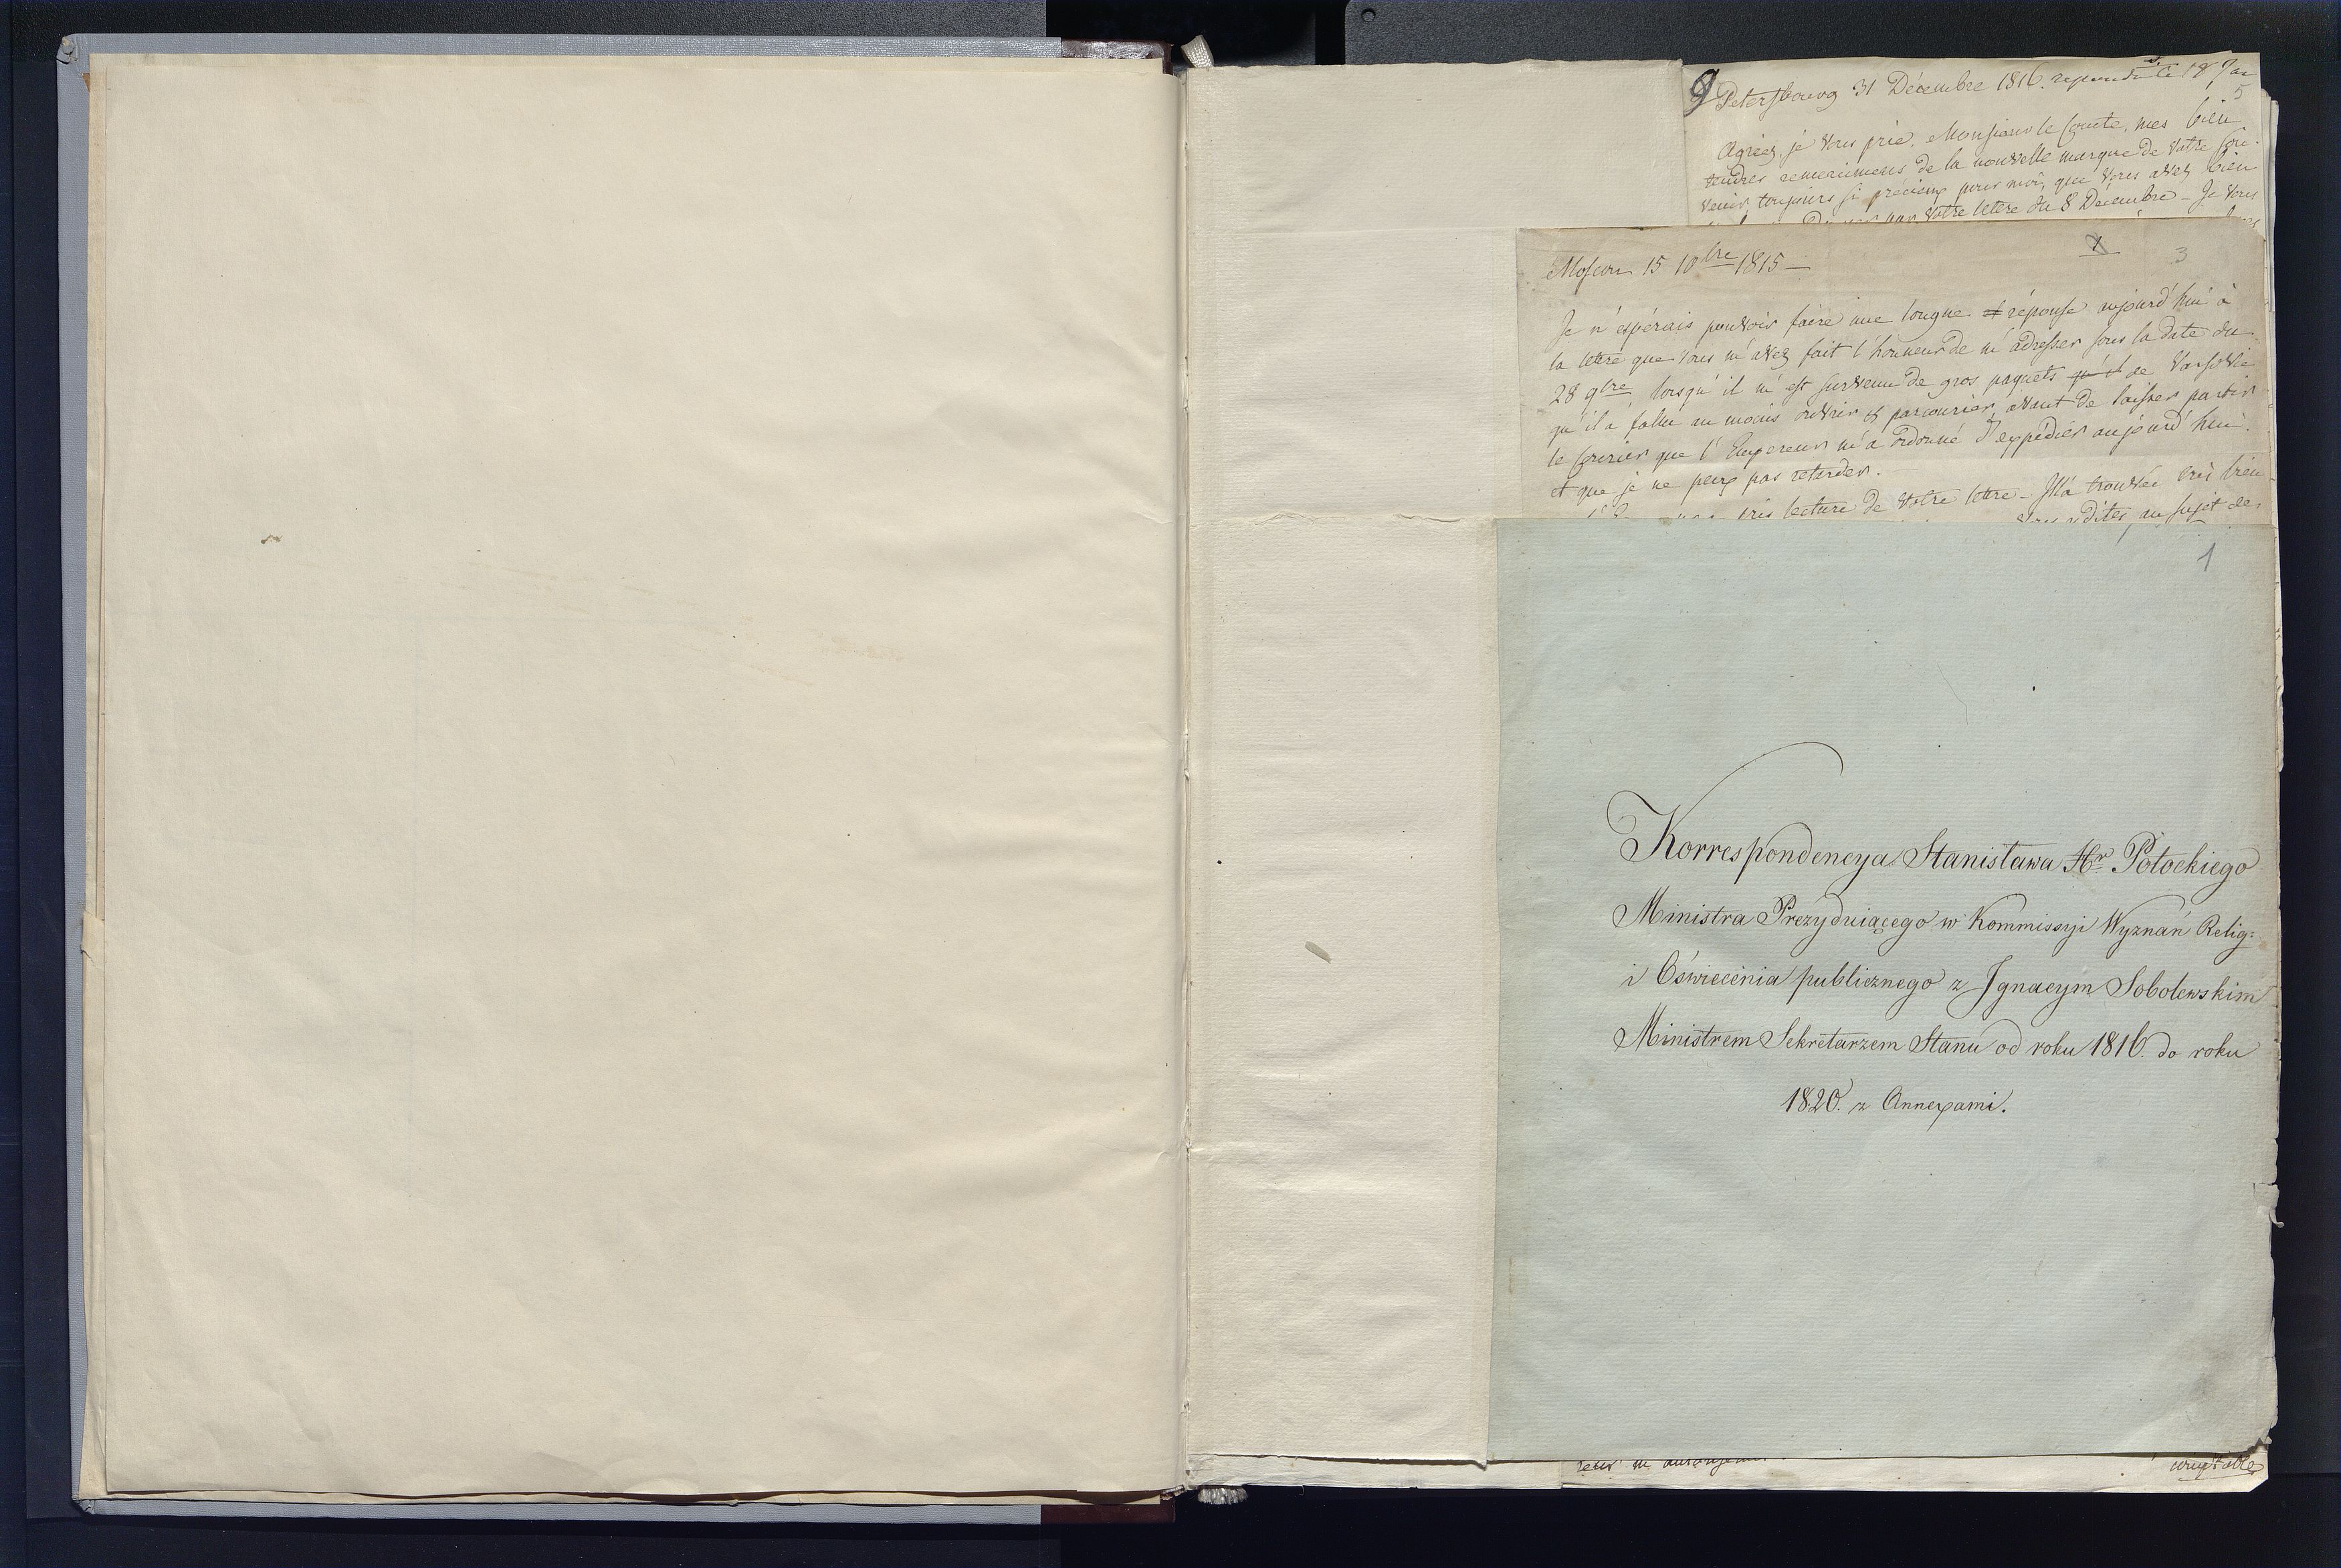 9 Petersbourg 31 Décembre 1816. repondu le 18 Jan
5
Agréez, je vous prie, Monsieur le Comte, mes bien
tendres remerciemens de la nouvelle marque de votre sou-
venir, toujours si précieux pour moi, que vous avez bien
votre lettre du 8 Décembre - Je vous
Moscou 15 10bre 1815 —
3
Je n'espérais pouvoir faire une longue réponse aujourd'hui à
la lettre que vous m'avez fait l'honneur de m'adresser sous la date du
28 9bre, lorsqu'il m'est survenu de gros paquets de Varsovie
qu'il a fallu au moins ouvrir et parcourir, avant de laisser partir
le Courier que l'Empereur m'a ordonné d'expédier aujourd'hui.
et que je ne peux pas retarder.
pris lecture de votre lettre - Il l'a trouvée très bien
vous dites, au sujet de
1
Korrespondencya Stanisława Hr. Potockiego
Ministra Prezyduiącego w Kommissyi Wyznań Relig:
i Oświecenia publicznego z Ignacym Sobolewskim
Ministrem Sekretarzem Stanu od roku 1816. do roku
1820. z Annexami.